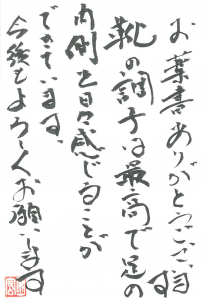 お葉書ありがとうございます
靴の調子は最高で足の
内側を日々感じることが
できています。
今後もよろしくお願いします